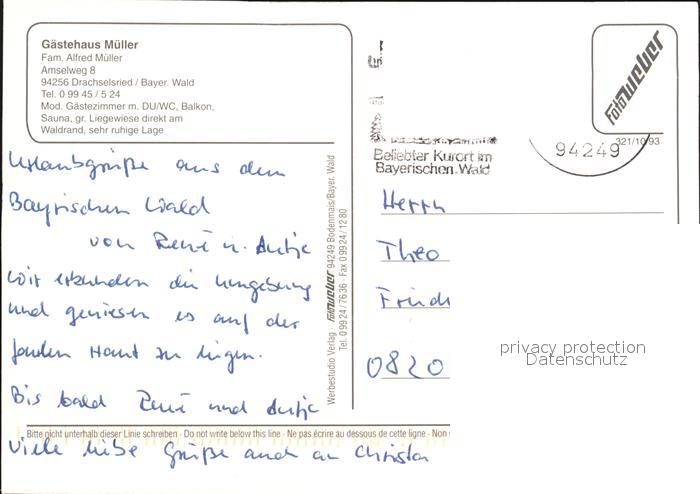 Gästehaus Müller
Fam. Alfred Müller
Amselweg 8
94256 Drachselsried / Bayer. Wald
Tel. 0 99 45 / 5 24
Mod. Gästezimmer m. DU/WC, Balkon,
Sauna, gr. Liegewiese direkt am
Waldrand, sehr ruhige Lage
Urlaubsgrüße aus dem
Bayrischen Wald
von René u. Antje
Wir erkunden die Umgebung
und geniesen es auf der
faulen Haut zu liegen.
Bis bald René und Antje
Bitte nicht unterhalb dieser Linie schreiben · Do not write below this line · Ne pas écrire au dessous de cette ligne · Non
Viele liebe Grüße auch an Christa
Werbestudio Verlag fotoweber 94249 Bodenmais/Bayer. Wald
Tel. 0 99 24 / 76 36 · Fax 0 99 24 / 12 80
fotoweber
321/10/93
94249
Beliebter Kurort im
Bayerischen Wald
Herrn
Theo
0820
privacy protection
Datenschutz